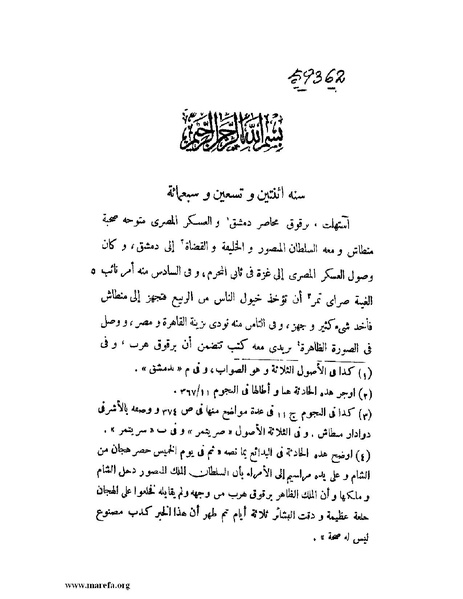 59362
بسم الله الرحمن الرحيم
سنه اثنتين و تسعين و سبعمائة
استهلت ، برقوق محاصر دمشق ١ و العسكر المصرى متوجه صحبة
منطاش و معه السلطان المنصور و الخليفة و القضاة ٢ إلى دمشق ، و كان
وصول العسكر المصرى إلى غزة فى ثانى المحرم ، و فى السادس منه أمر نائب ٥
الغيبة صراى تمر ٣ أن تؤخذ خيول الناس من الربيع فتجهز إلى منطاش
فأخد شىء كثير و جهز ، و فى الثامن منه نودى بزينة القاهرة و مصر ، و وصل
فى الصورة الظاهرة ٤ بريدى معه كتب تتضمن أن برقوق هرب ، و فى
(١) كذا فى الأصول الثلاثة و هو الصواب ، و فى م « بدمشق » .
(٢) اوجز هذه الحادثة هنا و أطالها فى النجوم ٣٦٧/١١ .
(٣) كذا فى النجوم ج ١١ فى عدة مواضع منها فى ص ٣٧٤ و وصفه بالأشرفى
دوادار منطاش . و فى الثلاثة الأصول « صريتمر » و فى ب « سريتمر » .
(٤) اوضح هذه الحادثة فى البدائع بما نصه « ثم فى يوم الخميس حضر هجان من
الشام و على يده مراسيم إلى الأمراء بأن السلطان الملك المنصور دخل الشام
و ملكها و أن الملك الظاهر برقوق هرب من وجهه ولم يقابله فخلعوا على الهجان
خلعة عظيمة و دقت البشائر ثلاثة أيام ثم ظهر أن هذا الخبر كذب مصنوع
ليس له صحة » .
www.marefa.org